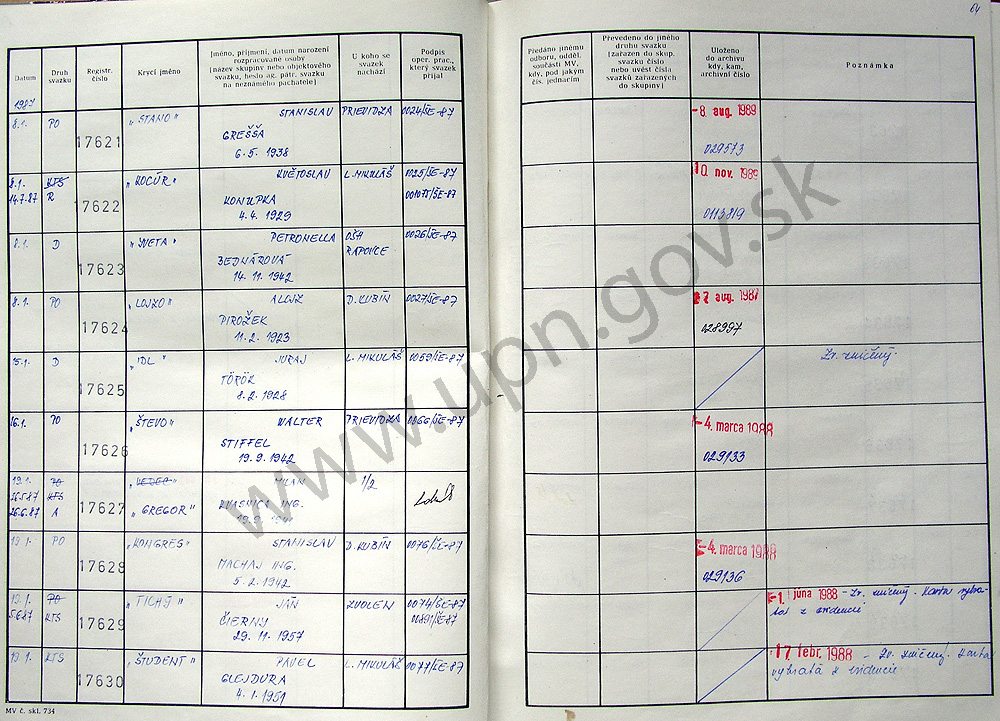 64
Datum
Druh svazku
Registr. číslo
Krycí jméno
Jméno, příjmení, datum narození
rozpracované osoby
(název skupiny nebo objektového
svazku, heslo ag. pátr. svazku
na neznámého pachatele)
U koho se
svazek
nachází
Podpis
oper. prac.,
který svazek
přijal
Předáno jinému
odboru, odděl.
součásti MV,
kdy, pod jakým
čís. jednacím
Převedeno do jiného
druhu svazku
(zařazen do skup.
svazku číslo
nebo uvést čísla
svazků zařazených
do skupiny)
Uloženo
do archivu
kdy, kam,
archivní číslo
Poznámka
1987
8.1. PO 17621 „STANO" STANISLAV PRIEVIDZA 0024/ŠE-87 -8. aug. 1989
GREŠŠA
6.5.1938 029573
8.1. KTS „KOCÚR" KVĚTOSLAV L. MIKULÁŠ 0025/ŠE-87 10. nov. 1989
14.7.87 R 17622 KONUPKA
4.4.1929
8.1. D 17623 „IVETA" PETRONELLA OŠH 0026/ŠE-87
BEDNÁROVÁ RAPOVCE
14.11.1942
8.1. PO 17624 „LOJZO" ALOJZ D. KUBÍN 0027/ŠE-87 aug. 1987
PIROŽEK 028997
11.2.1923
15.1. D 17625 „IDL" JURAJ L. MIKULÁŠ 0059/ŠE-87 Zv. zničený.
TÖRÖK
8.2.1928
16.1. PO 17626 „ŠTEVO" WALTER PRIEVIDZA 0066/ŠE-87 -4. marca 1988
STIFFEL 029133
19.9.1942
19.1. PO MILAN 1/2
26.5.87 KTS 17627 KVASNICA ING.
26.6.87 A „GREGOR"
19.1. PO 17628 „KONGRES" STANISLAV D. KUBÍN 0076/ŠE-87 -4. marca 1988
MACHAJ ING. 029136
5.2.1942
19.1. PO 17629 „TICHÝ" JÁN ZVOLEN 0074/ŠE-87 -1. júna 1988 - Zv. zničený. Karta vybra-
5.6.87 KTS ČIERNY 00891/ŠE-87 tá z evidencie
29.11.1957
19.1. KTS 17630 „ŠTUDENT" PAVEL L. MIKULÁŠ 0077/ŠE-87 17. febr. 1988 - Zv. zničený. Karta
GLEJDURA vybratá z evidencie
4.1.1951
MV č. skl. 734
www.upn.gov.sk